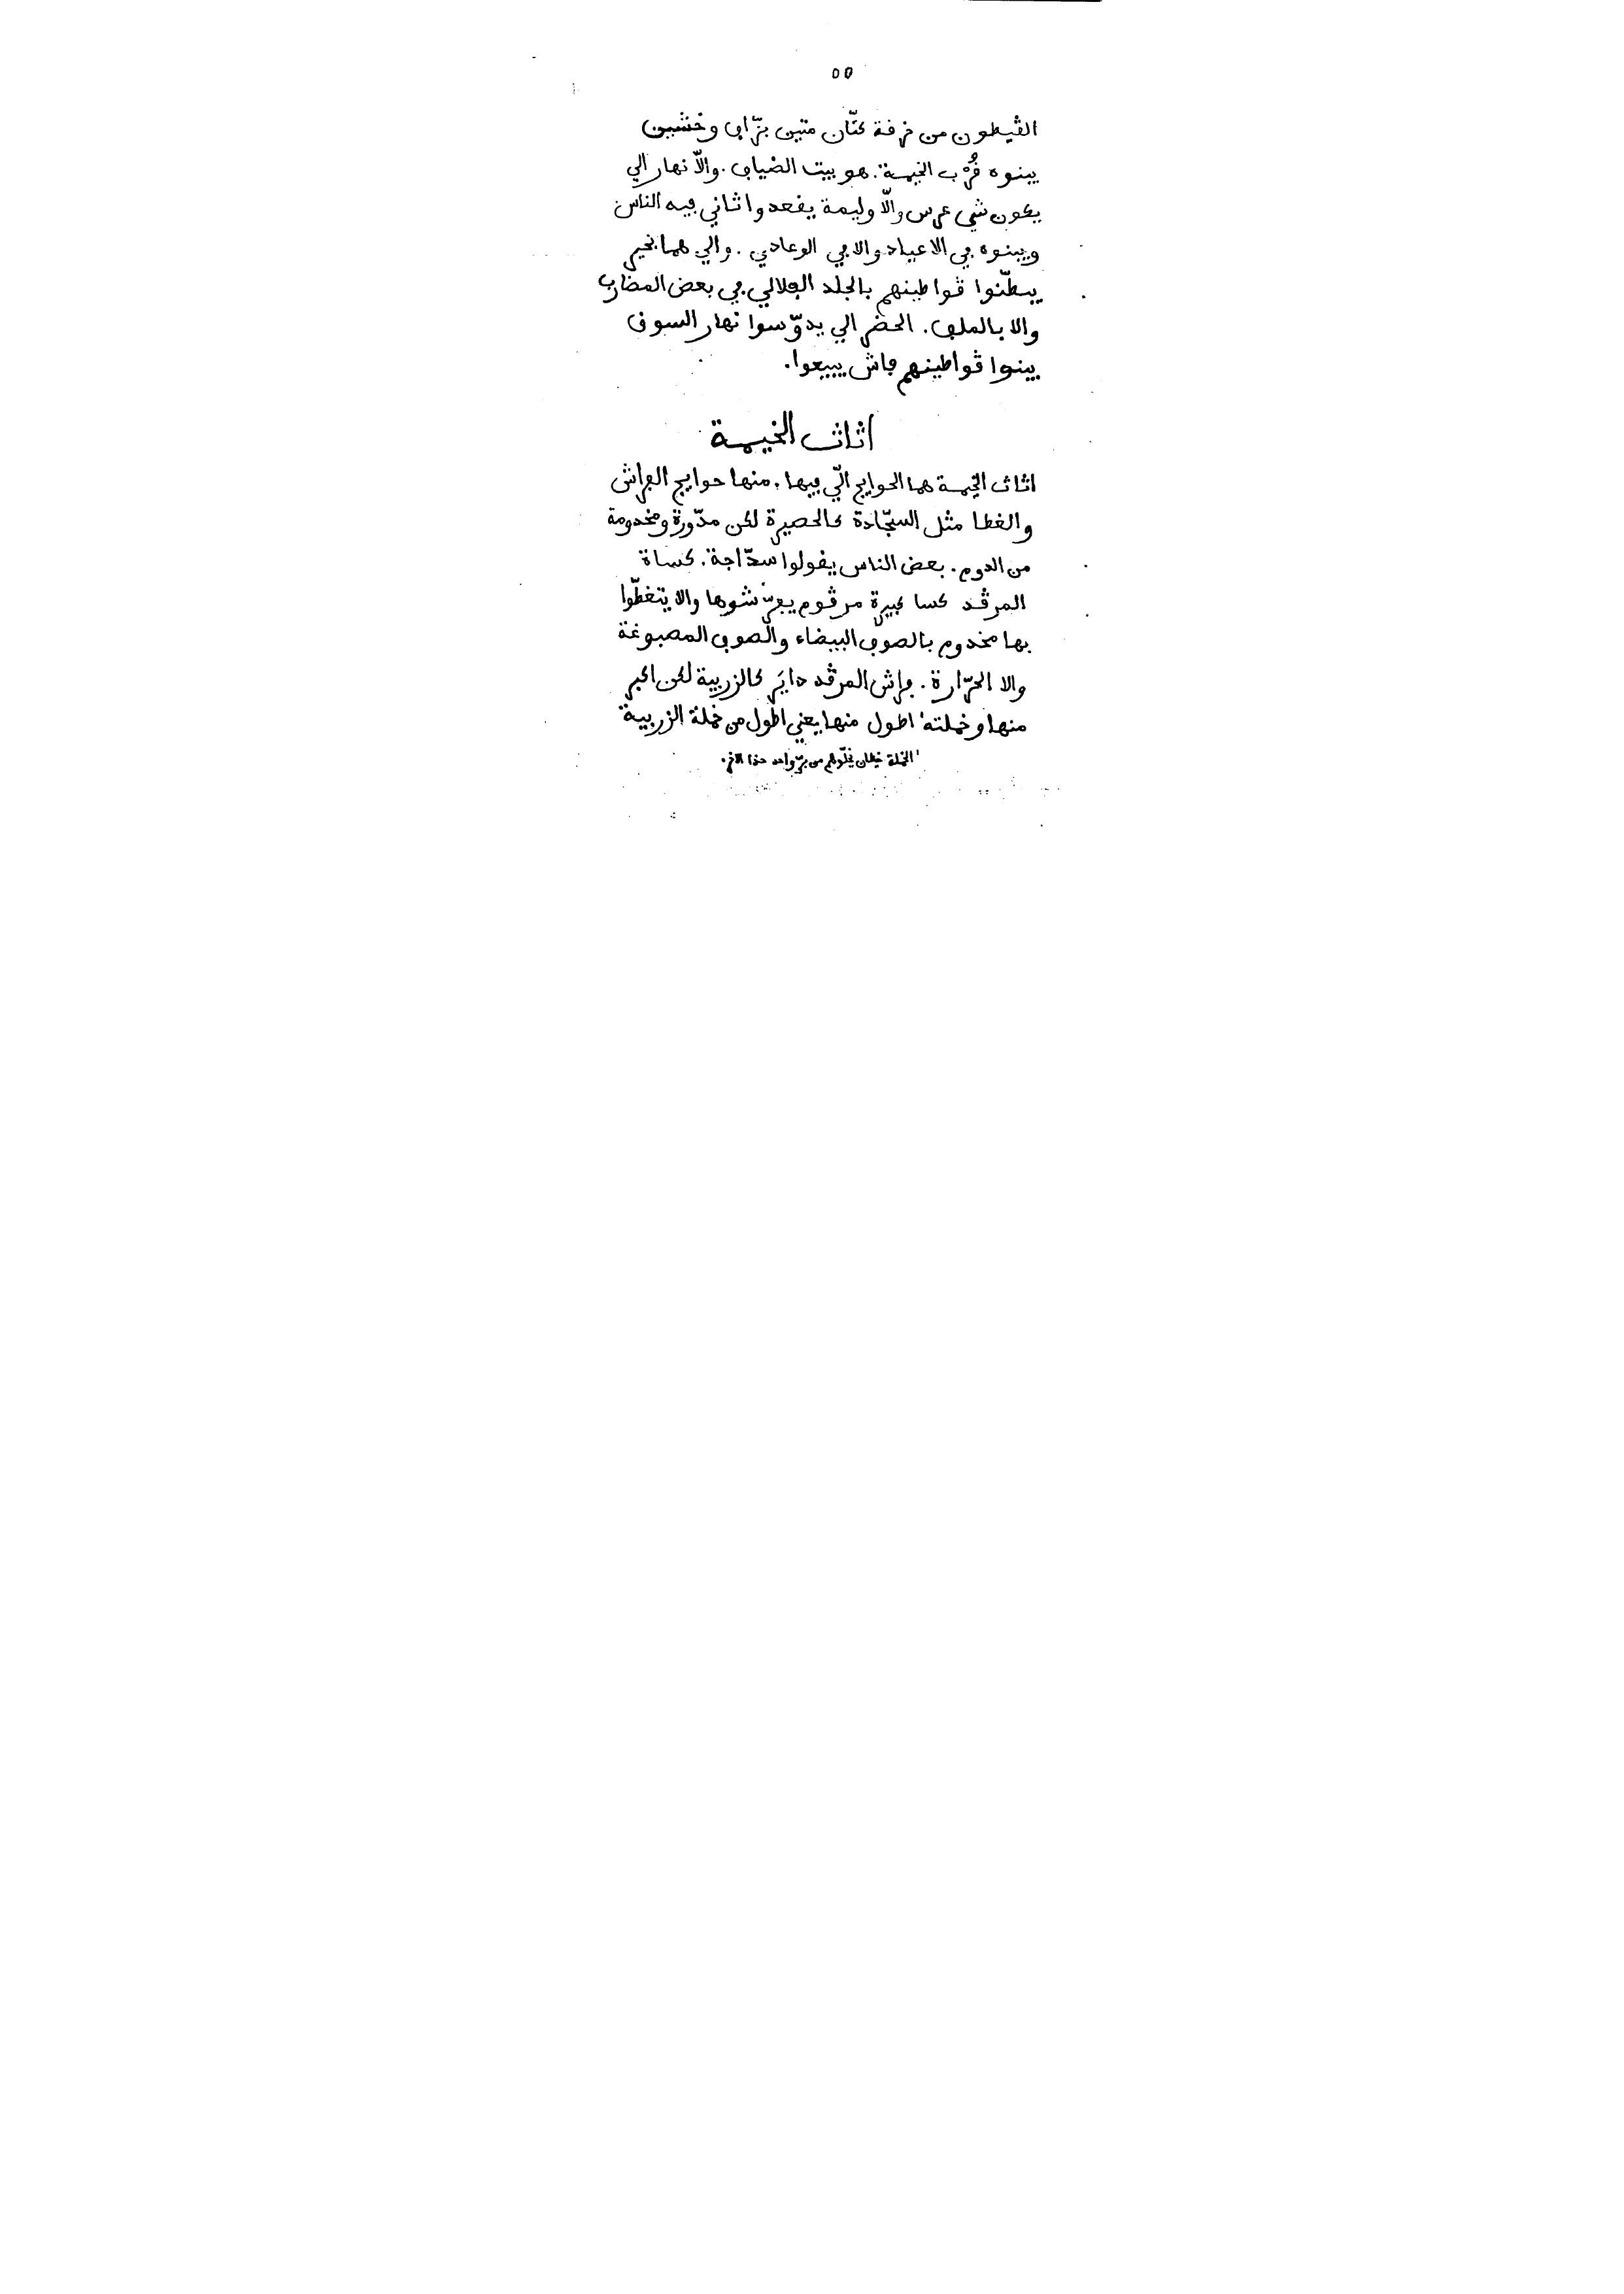 ٥٥
الڨيطون من خرقة كتّان متين بزّاف وخشين
يبنوه قُرْب الخيمة. هو بيت الضياف. والّا نهار الي
يكون شي عرس والّا وليمة يقعدوا ثاني فيه الناس
ويبنوه في الاعياد والا في الوعادي. والي هما بخير
يبطّنوا ڨواطينهم بالجلد الفلالي في بعض المضارب
والا بالملف. الحضر الي يدوّسوا نهار السوق
يبنوا ڨواطينهم باش يبيعوا.
أثاث الخيمة
اثاث الخيمة هما الحوايج الّي فيها. منها حوايج الفراش
والغطا مثل السجّادة كالحصيرة لكن مدّورة ومخدومة
من الدوم. بعض الناس يقولوا سدّاجة. كساة
المرڨد كسا كبيرة مرڨوم يفرّشوها والا يتغطّوا
بها مخدوم بالصوف البيضاء والصوف المصبوغة
والا الحرّارة. فراش المرڨد دايَر كالزربية لكن اكبر
منها وخملته' اطول منها يعني اطول من خملة الزربية
' الخملة خيطان يخلّوهم من برّ واحد حذا الاخر.